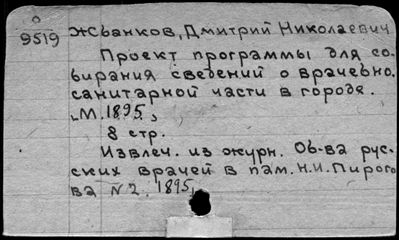 9519 Жбанков, Дмитрий Николаевич
Проект программы для со-
бирания сведений о врачебно-
санитарной части в городе.
„М. 1895.,
8 стр.
Извлеч. из журн. Об-ва рус-
ских врачей в пам. Н.И. Пирого
ва N 2. 1895,